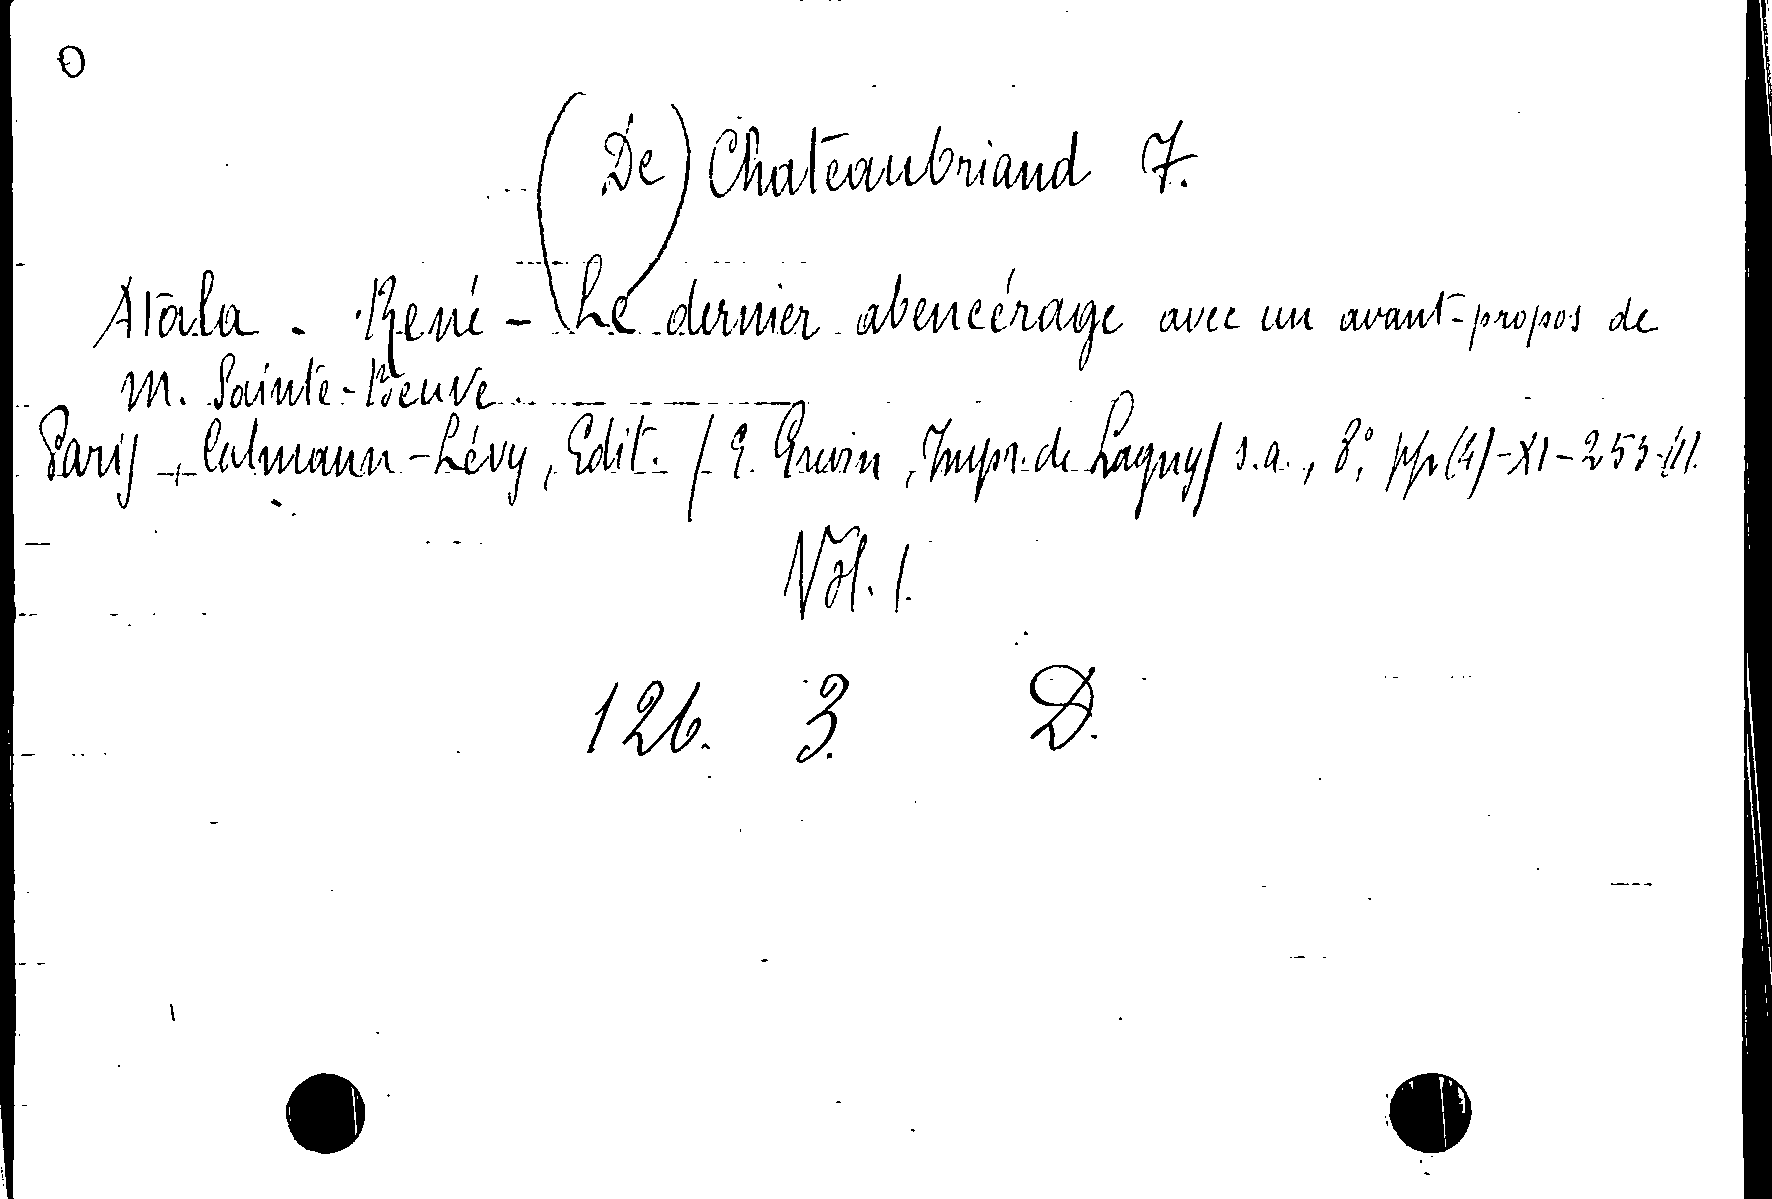 (De) Chateaubriand F.
Atala - René - Le dernier abencérage avec un avant-propos de
M. Sainte-Beuve
Paris, Calmann-Lévy, Edit. (E. Grevin, Impr. de Lagny) s.a., 8° pp (4)-XI-253-(1).
Vol. 1.
126. 3. D.